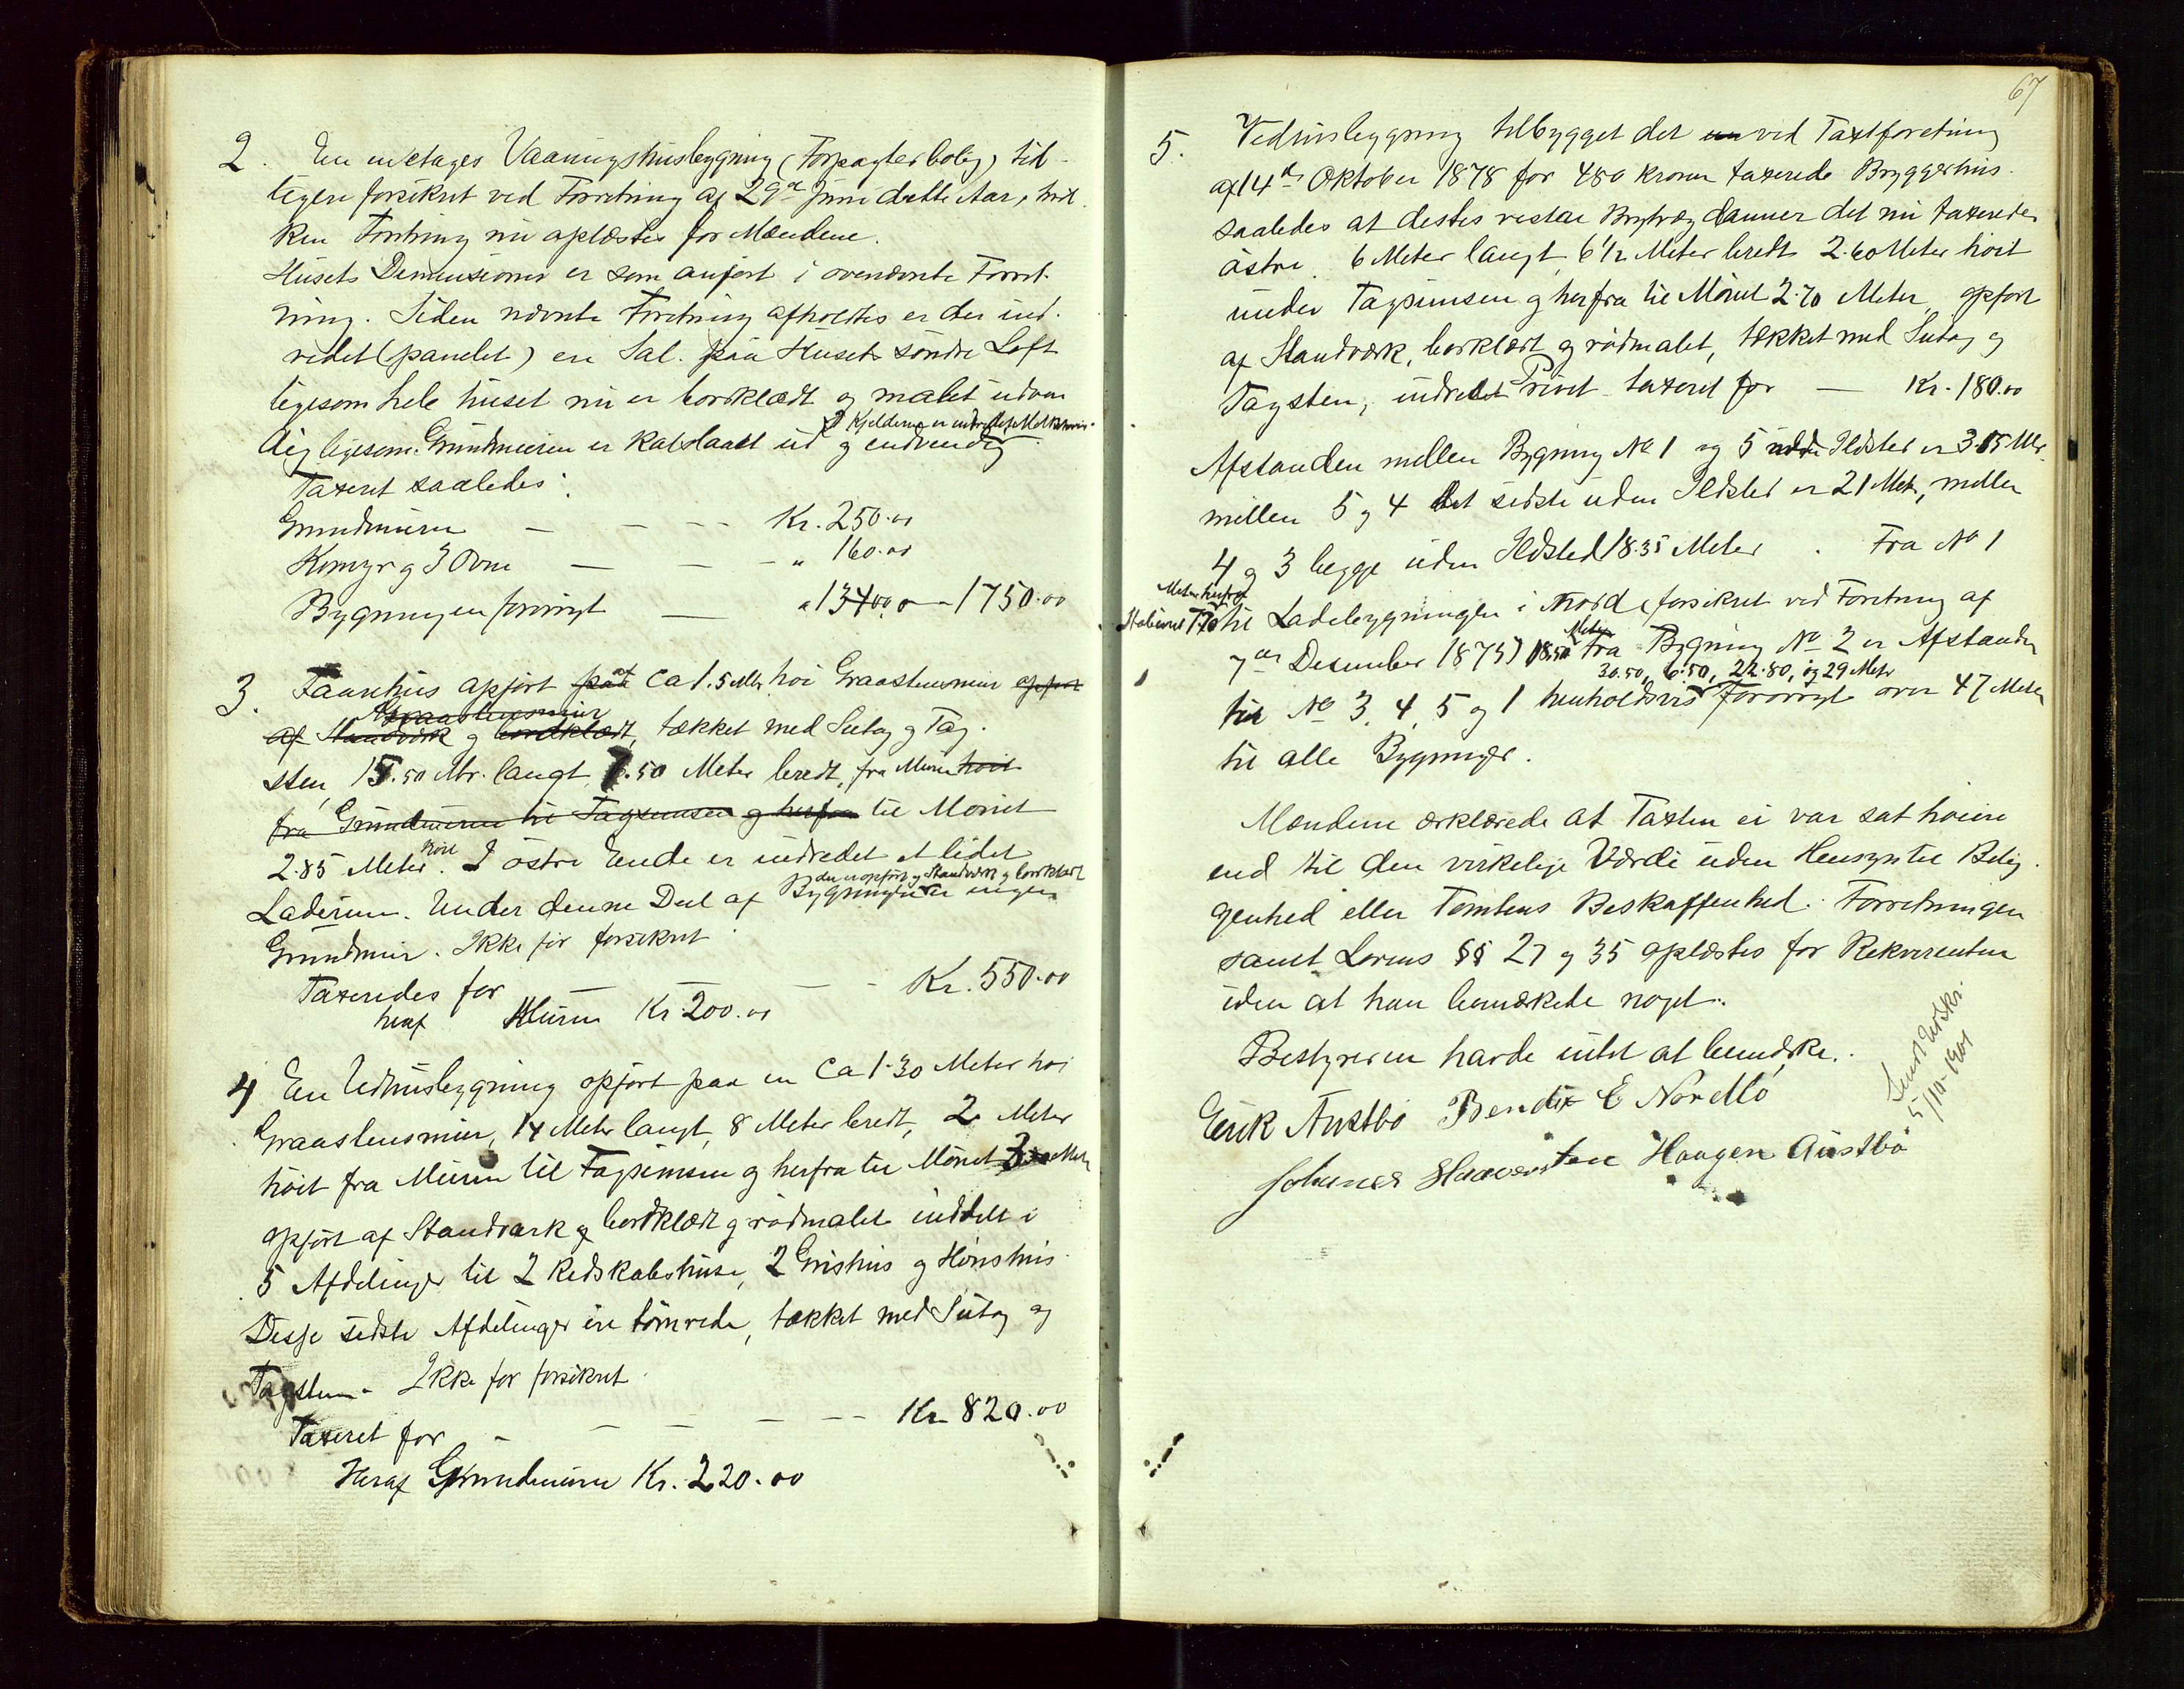 2. En en etages Vaaningshusbygning (Forpagterbolig) tid-
ligere forsikret ved Forretning af 29de Juni dette Aar, hvil
ken Forretning nu oplæstes for Mændene.
Husets Dimensioner er som anført i ovennævnte Forret-
ning. Siden nævnte Forretning afholdtes er der ind-
redet (panelet) en Sal paa Husets søndre Loft
ligesom hele huset nu er bordklædt og malet udven
I Kjelderen er indredet Melkebod
dig ligesom Grundmuren er kalslaaet ud og indvendig
Taxeret saaledes:
Grundmuren — — — Kr. 250.00
Komfyr og 3 Ovne — — — " 160.00
Bygningen forøvrigt — " 1340,00 — 1750.00
3. Faarehus opført paa af ca 1.5 Mtr. høi Graastensmur opført
Graastensmur
af Standværk og bordklædt, tækket med Sutag og Tag-
sten, 15.50 Mtr. langt 7.50 Meter bredt, fra Muren høit
fra Grundmuren til Tagsimsen og herfra til Mønet
2.85 Meter høit. I østre Ende er indredet et lidet
der er opført af Standværk og bordklædt
Laderum. Under denne Del af Bygningen er ingen
Grundmur. Ikke før forsikret.
Taxeredes for — — — Kr. 550.00
heraf Muren Kr. 200.00
4 En Udhusbygning opført paa en ca 1.30 Meter høi
Graastensmur, 14 Meter langt, 8 Meter bredt, 2 Meter
høit fra Muren til Tagsimsen og herfra til Mønet 3 Meter
opført af Standværk og bordklædt og rødmalet inddelt i
5 Afdelinger til 2 Redskabshuse, 2 Grishus og Hønshus
Disse sidste Afdelinger ere tømrede, tækket med Sutag og
Tagsten. Ikke før forsikret.
Taxeret for — — — — Kr. 820.00
Heraf Grundmuren Kr. 220.00
67
5. Vedhusbygning tilbygget det ved Taxtforretning
af 14de Oktober 1878 for 480 kroner taxerede Bryggerhus.
saaledes at dettes vestre Brystvæg danner det nu taxeredes
østre. 6 Meter langt, 6 1/2 Meter bredt 2.60 Meter høit
under Tagsimsen og herfra til Mønet 2.70 Meter, opført
af Standværk, bordklædt og rødmalet, tækket med Sutag og
Tagsten, indredet Privet taxeret for — Kr. 180.00
Afstanden mellem Bygning No 1 og 5 uden Ildsted er 3.15 Mtr.
mellem 5 og 4 det sidste uden Ildsted er 21 Meter, mellem
4 og 3 begge uden Ildsted 18.35 Meter. Fra No 1
Meter herfra
til Ladebygningen i Nord (forsikret ved Forretning af
7de Desember 1875) 18.50 Meter Fra Bygning No 2 er Afstanden
30.50, 6.50, 22.80, og 29 Meter
til No 3, 4, 5 og 1 henholdsvis forøvrigt over 47 Meter
til alle Bygninger.
Mændene erklærede at Taxten ei var sat høiere
end til den virkelige Værdi uden Hensyn til Belig-
genhed eller Tomtens Beskaffenhed. Forretningen
samt Lovens §§ 27 og 35 oplæstes for Rekvirenten
uden at han bemærkede noget.
Bestyreren havde intet at bemærke.
Erik Austbø Bendix E Nordbø
Johannes Haavarstein Haagen Austbø
Sendt Udskr.
5/10-1901